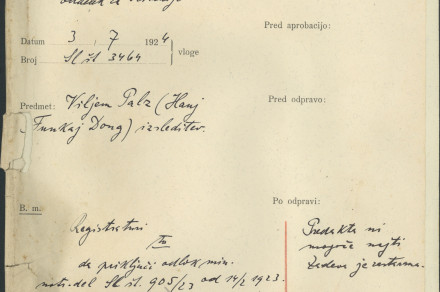 Pred aprobacijo:
Datum 3/7 1924
Broj Sl št 3464
vloge
Predmet: Viljem Palz (Hanj
Funkaj Dong) izsleditev.
Pred odpravo:
B. m.:
Registraturi
da priključi odlok, min.
notr. del Sl št. 905/23 od 14/2 1923.
Po odpravi:
Predakta ni
mogoče najti
Zadeva je